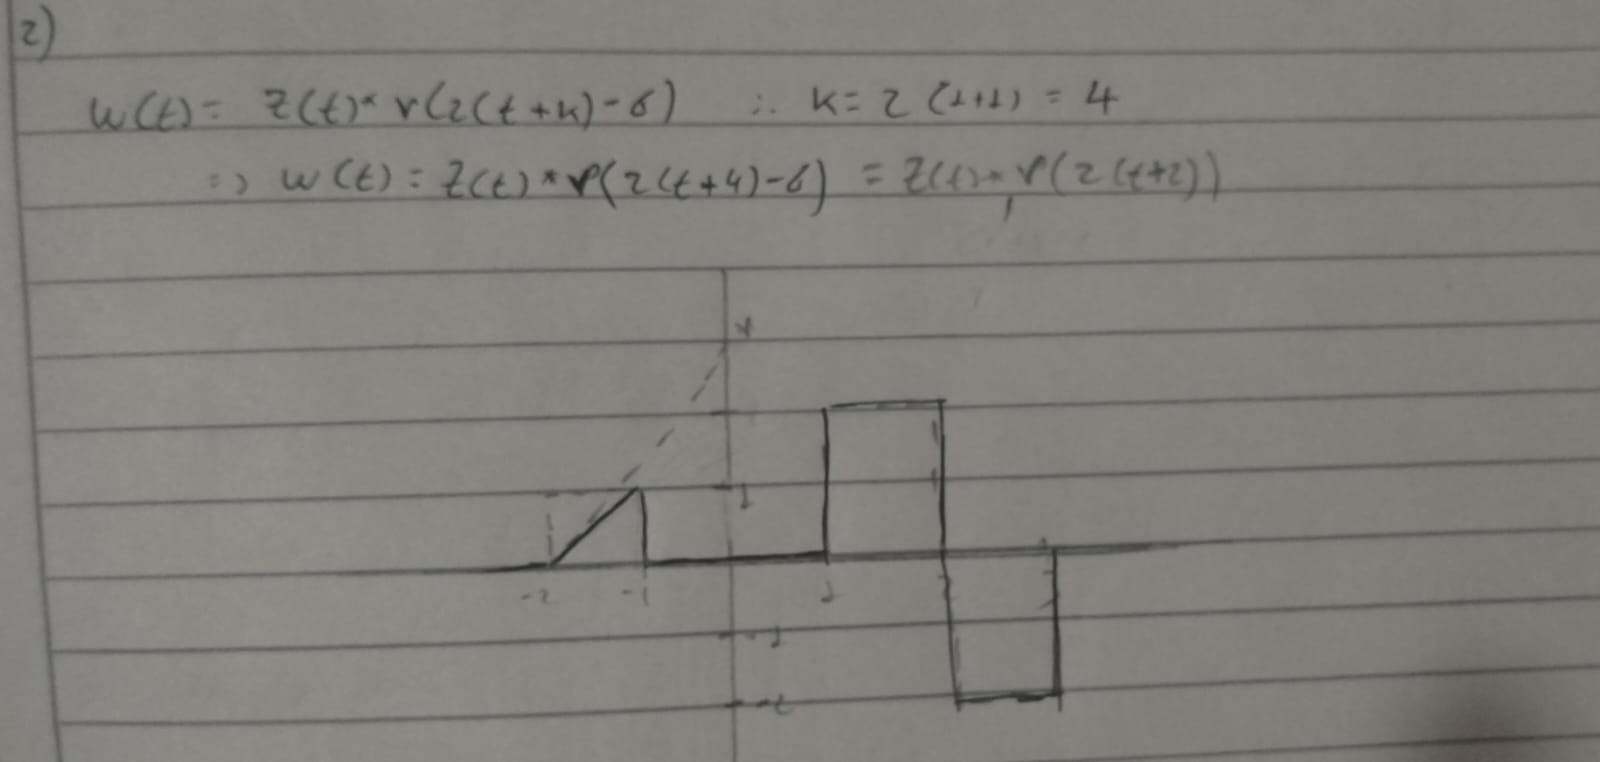 2)
w(t) = z(t)* r(2(t+k)-6) ∴ k = 2(1+1) = 4
=> w(t) = z(t) * r(2(t+4)-6) = z(t) * r(2(t+2))
1
-2 -1 1
-1
-2